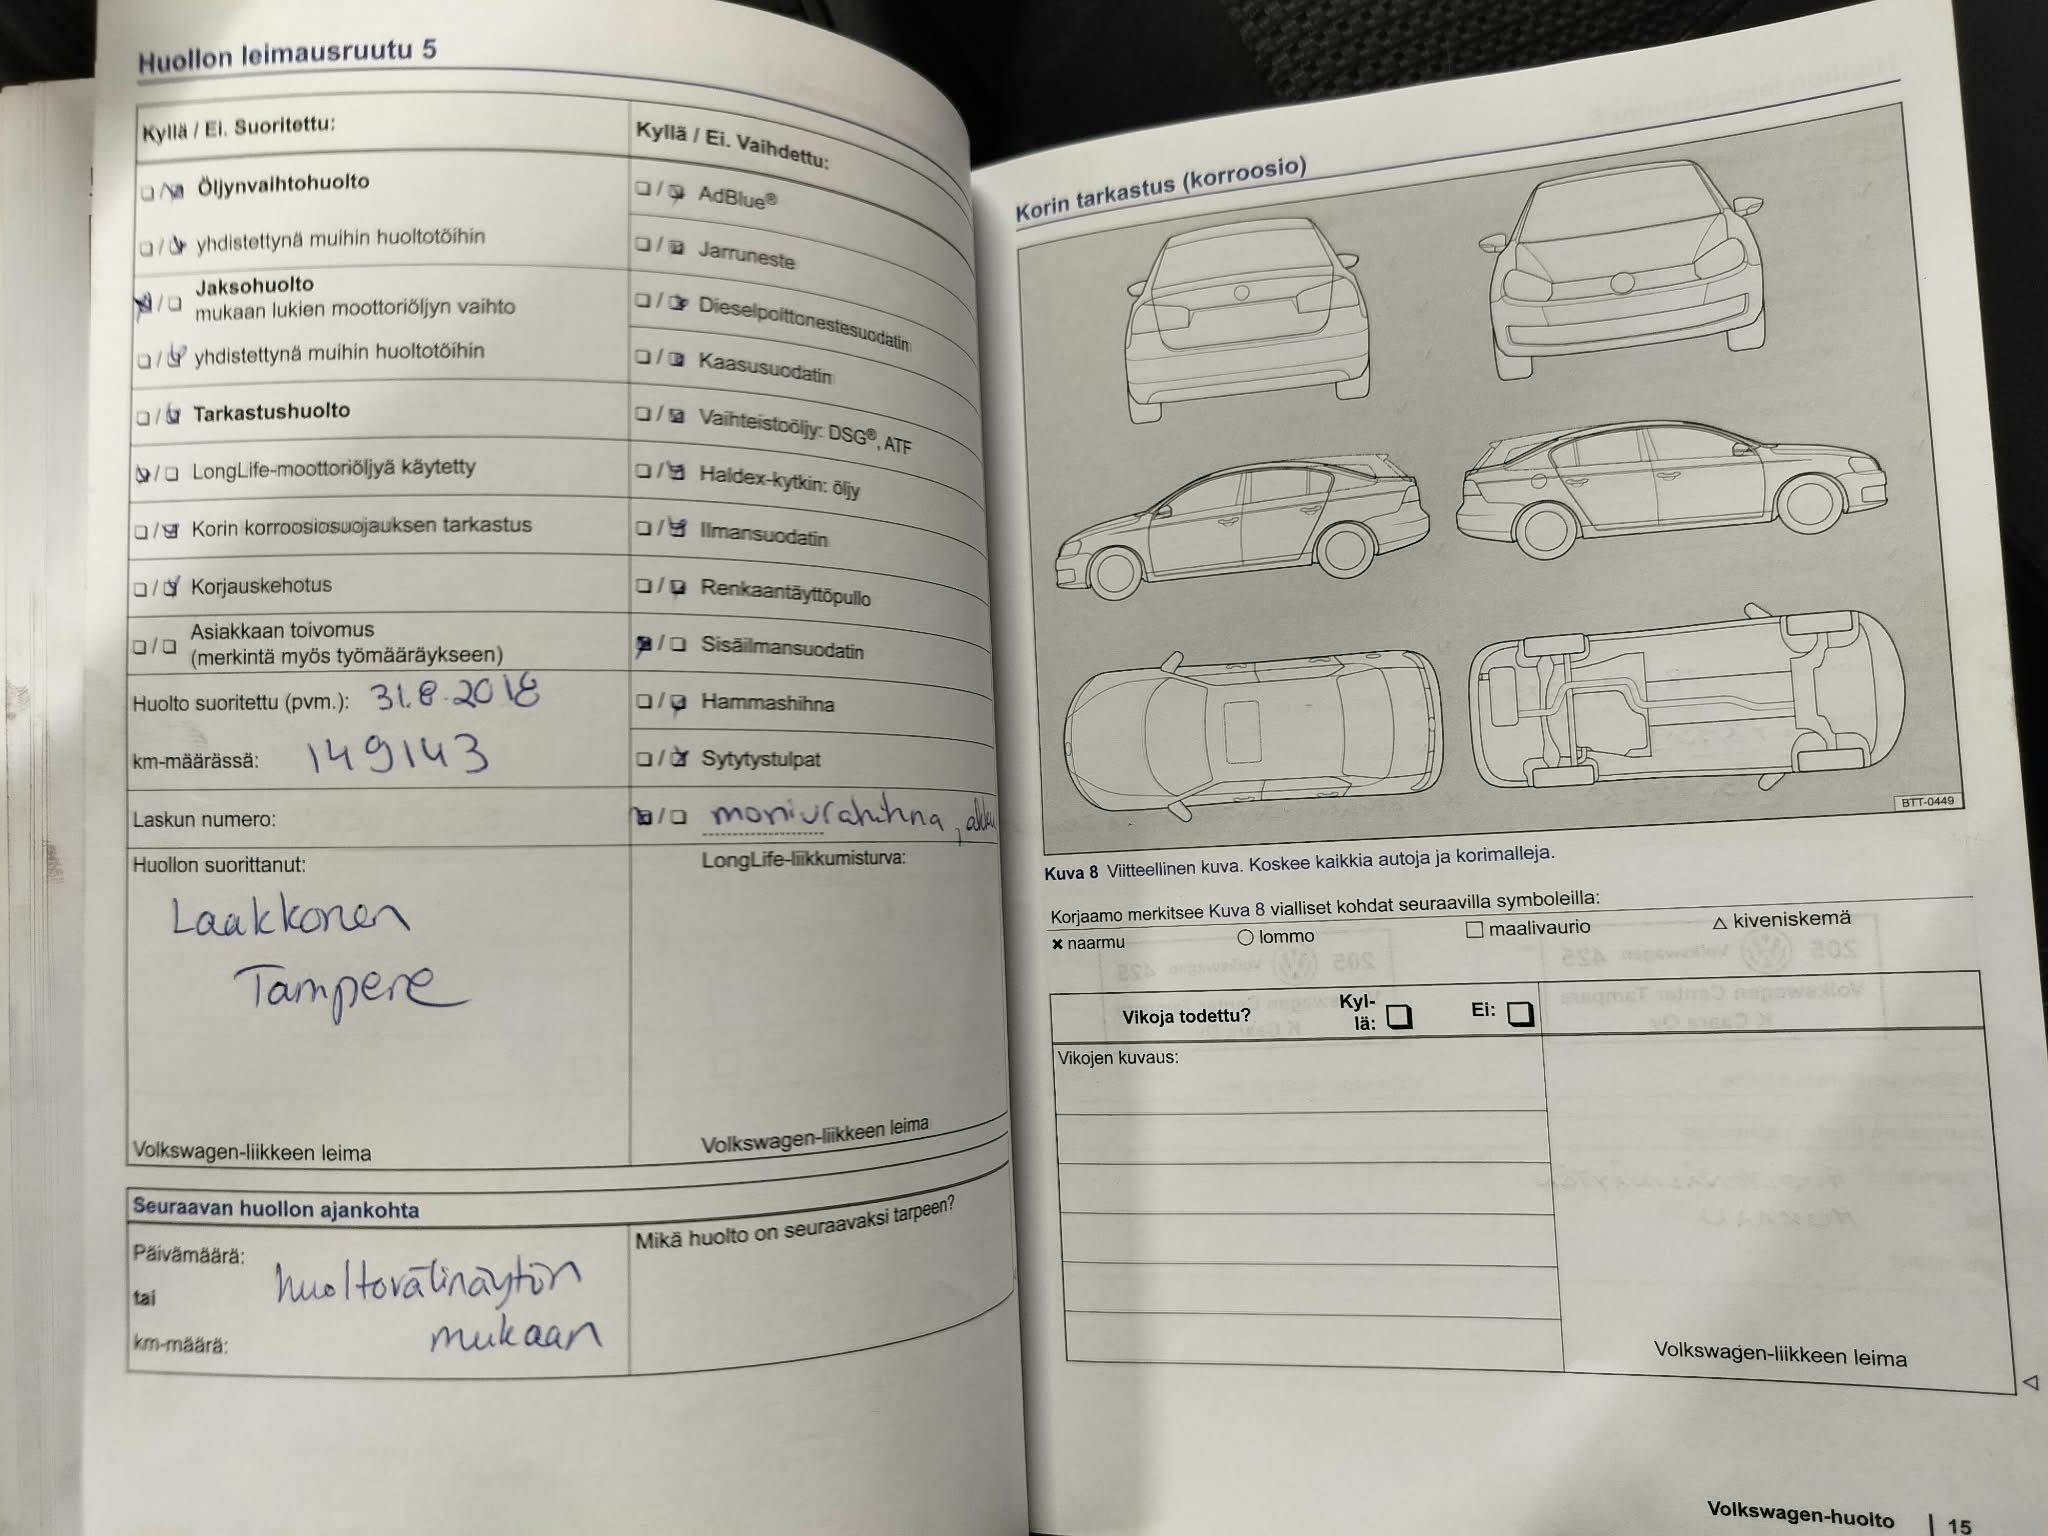 Huollon leimausruutu 5
Kyllä / Ei. Suoritettu:
Öljynvaihtohuolto
yhdistettynä muihin huoltotöihin
Jaksohuolto
mukaan lukien moottoriöljyn vaihto
yhdistettynä muihin huoltotöihin
Tarkastushuolto
LongLife-moottoriöljyä käytetty
Korin korroosiosuojauksen tarkastus
Korjauskehotus
Asiakkaan toivomus
(merkintä myös työmääräykseen)
Huolto suoritettu (pvm.): 31.8.2018
km-määrässä: 149143
Laskun numero:
Huollon suorittanut:
Laakkonen
Tampere
Volkswagen-liikkeen leima
Kyllä / Ei. Vaihdettu:
AdBlue®
Jarruneste
Dieselpolttonestesuodatin
Kaasusuodatin
Vaihteistoöljy: DSG®, ATF
Haldex-kytkin: öljy
Ilmansuodatin
Renkaantäyttöpullo
Sisäilmansuodatin
Hammashihna
Sytytystulpat
moniurahihna, akku
LongLife-liikkumisturva:
Volkswagen-liikkeen leima
Seuraavan huollon ajankohta
Päivämäärä:
tai
km-määrä:
huoltovälinäytön
mukaan
Mikä huolto on seuraavaksi tarpeen?
Korin tarkastus (korroosio)
BTT-0449
Kuva 8 Viitteellinen kuva. Koskee kaikkia autoja ja korimalleja.
Korjaamo merkitsee Kuva 8 vialliset kohdat seuraavilla symboleilla:
× naarmu ○ lommo □ maalivaurio △ kiveniskemä
Vikoja todettu? Kyl-
lä: □ Ei: □
Vikojen kuvaus:
Volkswagen-liikkeen leima
Volkswagen-huolto | 15